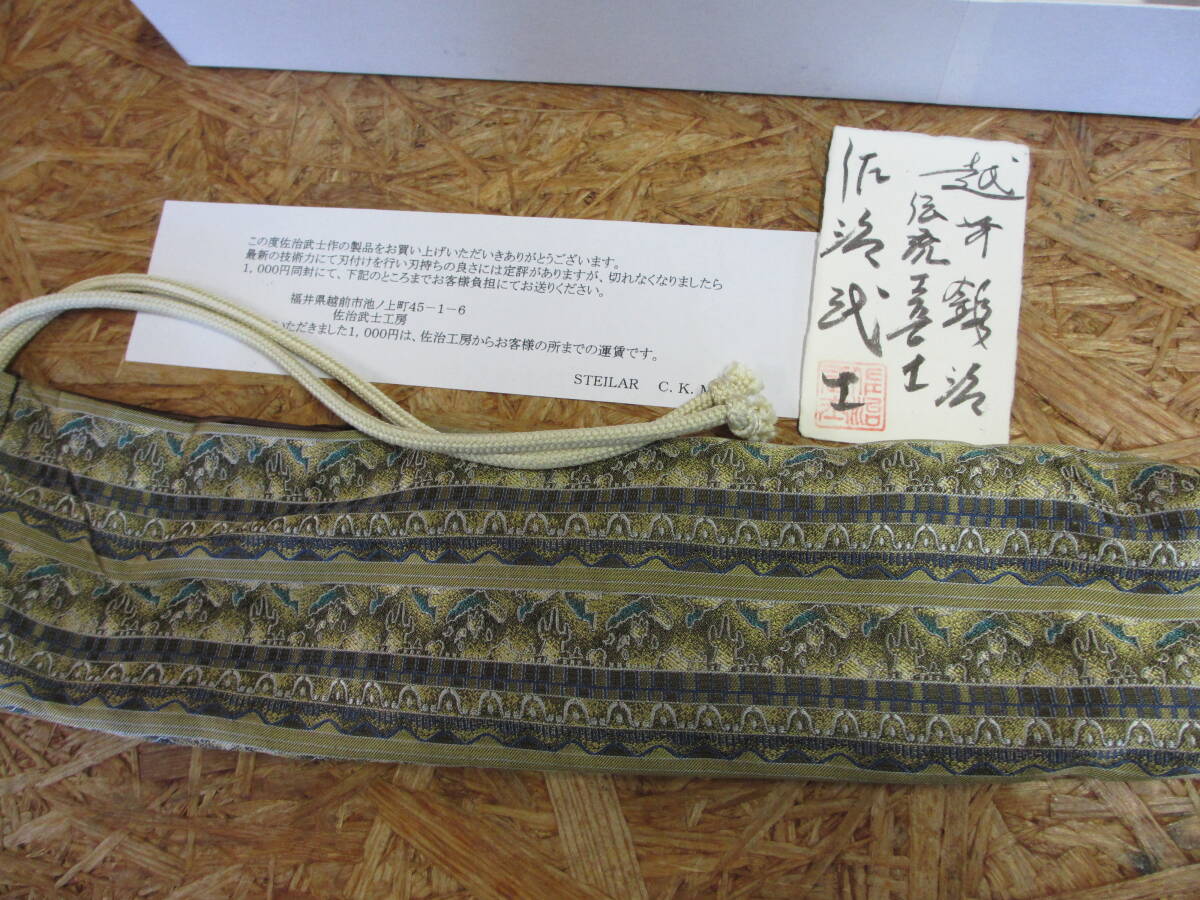 この度佐治武士作の製品をお買い上げいただきありがとうございます。
最新の技術力にて刃付けを行い刃持ちの良さには定評がありますが、切れなくなりましたら
1,000円同封にて、下記のところまでお客様負担にてお送りください。
福井県越前市池ノ上町45－1－6
佐治武士工房
いただきました1,000円は、佐治工房からお客様の所までの運賃です。
STEILAR C.K.M
越前鍛治
伝統工芸士
佐治武士